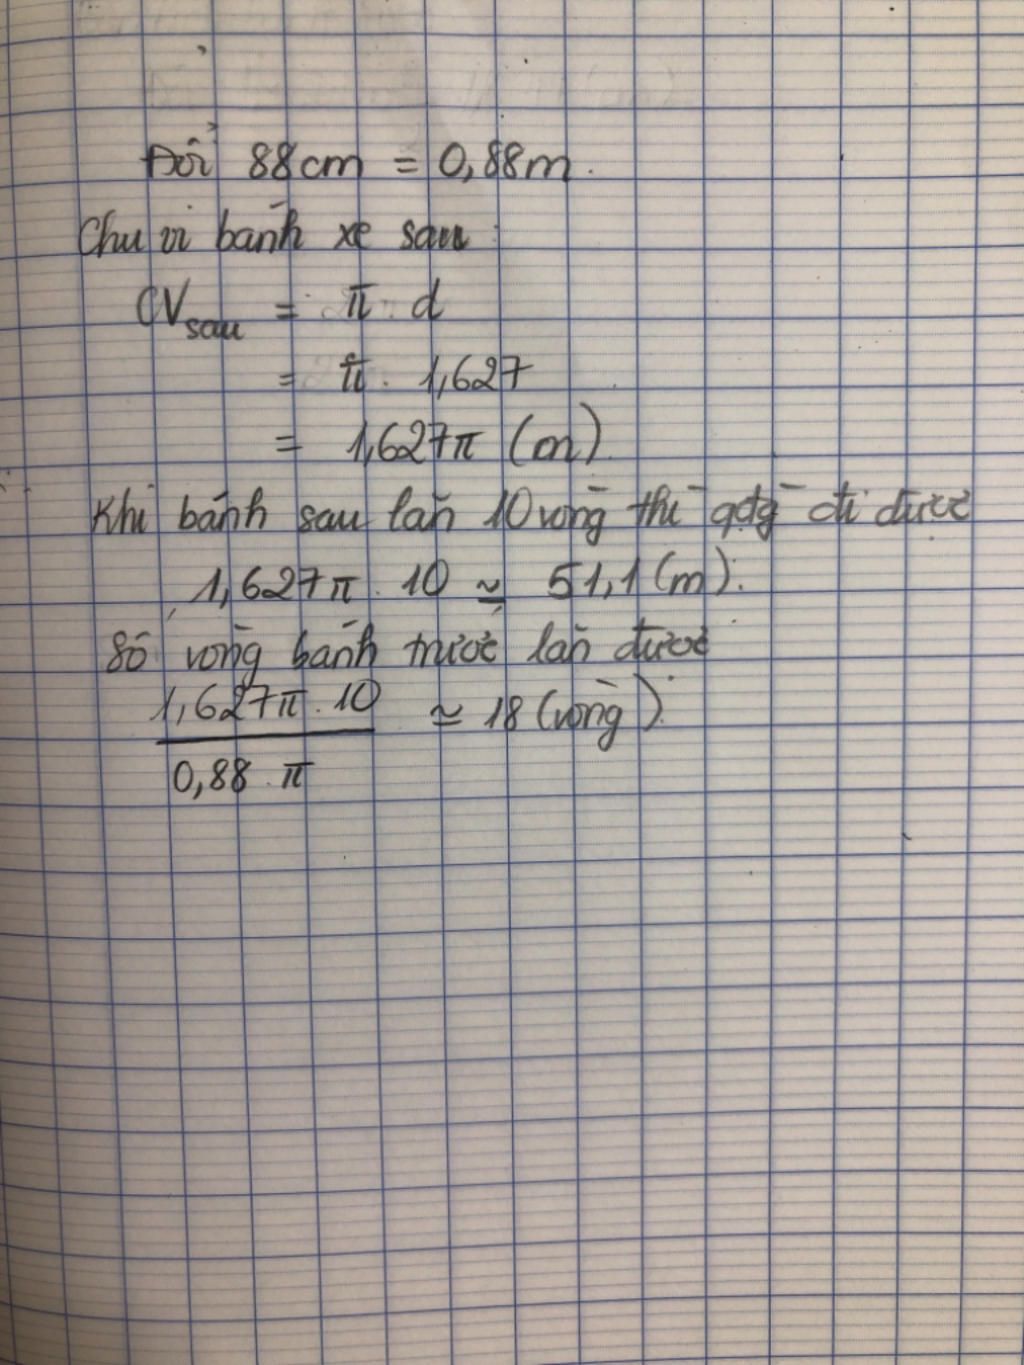 Đổi 88cm = 0,88m.
Chu vi bánh xe sau:
CVsau = π d
= π. 1,627
= 1,627π (m)
Khi bánh sau lăn 10 vòng thì qđg đi được
1,627π . 10 ≃ 51,1 (m).
Số vòng bánh trước lăn được
1,627π . 10 ≃ 18 (vòng).
0,88 . π